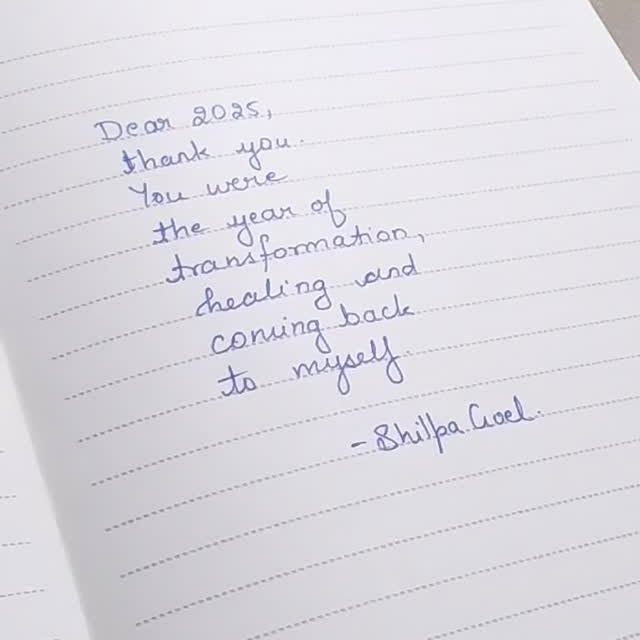 Dear 2025,
thank you.
You were
the year of
transformation,
healing and
coming back
to myself.
- Shilpa Goel.